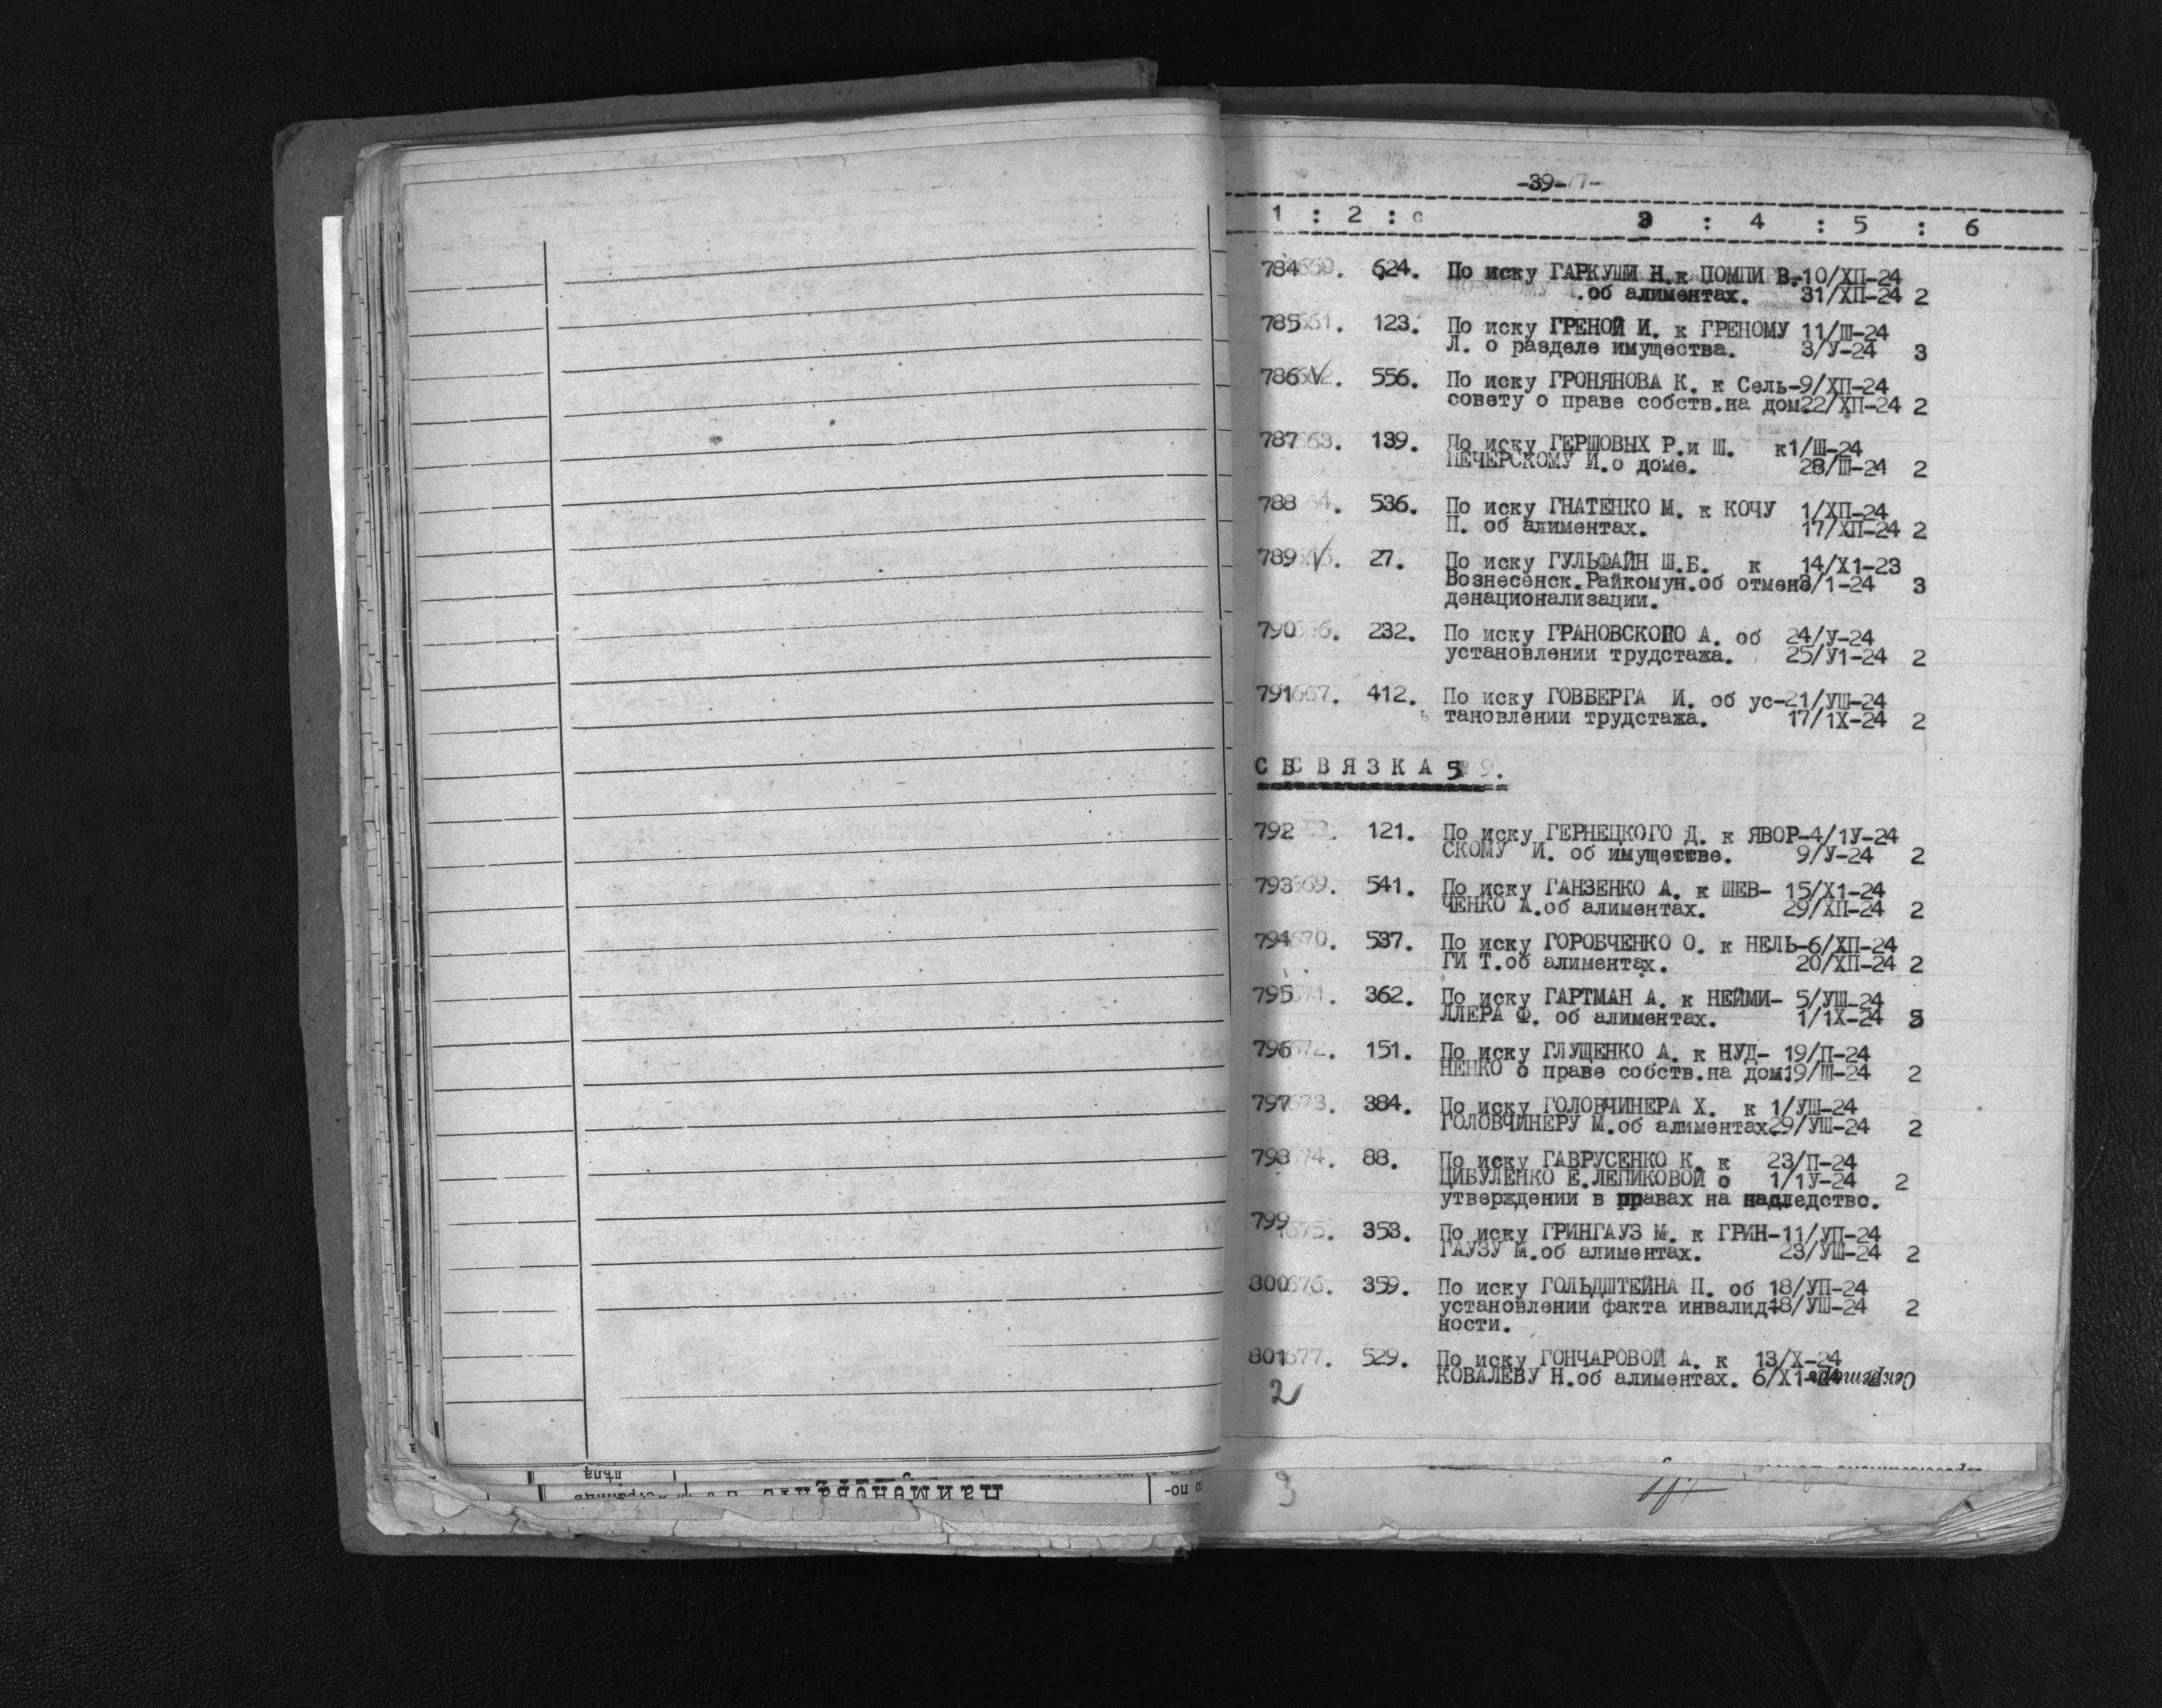 -39-
1 : 2 : 3 : 4 : 5 : 6
784 624. По иску ГАРКУШИ Н.к ПОМПИ В.-10/ХП-24
.об алиментах. 31/ХП-24 2
785 123. По иску ГРЕНОЙ И. к ГРЕНОМУ 11/Ш-24
Л. о разделе имущества. 3/У-24 3
786 V. 556. По иску ГРОНЯНОВА К. к Сель-9/ХП-24
совету о праве собств.на дом.22/ХП-24 2
787 139. По иску ГЕРШОВЫХ Р.и Ш. к1/Ш-24
ПЕЧЕРСКОМУ И.о доме. 28/Ш-24 2
788 536. По иску ГНАТЕНКО М. к КОЧУ 1/ХП-24
П. об алиментах. 17/ХП-24 2
789 V. 27. По иску ГУЛЬФАЙН Ш.Б. к 14/Х1-23
Вознесенск.Райкомун.об отмене 3/1-24 3
денационализации.
790 232. По иску ГРАНОВСКОГО А. об 24/У-24
установлении трудстажа. 25/У1-24 2
791 667. 412. По иску ГОВБЕРГА И. об ус-21/УШ-24
тановлении трудстажа. 17/1Х-24 2
С В Я З К А 5
792 121. По иску ГЕРНЕЦКОГО Д. к ЯВОР-4/1У-24
СКОМУ И. об имуществе. 9/У-24 2
793 669. 541. По иску ГАНЗЕНКО А. к ШЕВ- 15/Х1-24
ЧЕНКО А.об алиментах. 29/ХП-24 2
794 670. 537. По иску ГОРОБЧЕНКО О. к НЕЛЬ-6/ХП-24
ГИ Т.об алиментах. 20/ХП-24 2
795 671. 362. По иску ГАРТМАН А. к НЕЙМИ- 5/УШ-24
ЛЛЕРА Ф. об алиментах. 1/1Х-24
796 672. 151. По иску ГЛУЩЕНКО А. к НУД- 19/П-24
НЕНКО о праве собств.на дом.19/Ш-24 2
797 673. 384. По иску ГОЛОВЧИНЕРА Х. к 1/УШ-24
ГОЛОВЧИНЕРУ М.об алиментах.29/УШ-24 2
798 674. 88. По иску ГАВРУСЕНКО К. к 23/П-24
ЦИБУЛЕНКО Е.ЛЕПИКОВОЙ о 1/1У-24 2
утверждении в правах на наследство.
799 675. 353. По иску ГРИНГАУЗ М. к ГРИН-11/УП-24
ГАУЗУ М.об алиментах. 23/УШ-24 2
800 676. 359. По иску ГОЛЬДШТЕЙНА П. об 18/УП-24
установлении факта инвалид-18/УШ-24 2
ности.
801 677. 529. По иску ГОНЧАРОВОЙ А. к 13/Х-24
КОВАЛЕВУ Н.об алиментах. 6/Х1-24 Секретарь
2
3